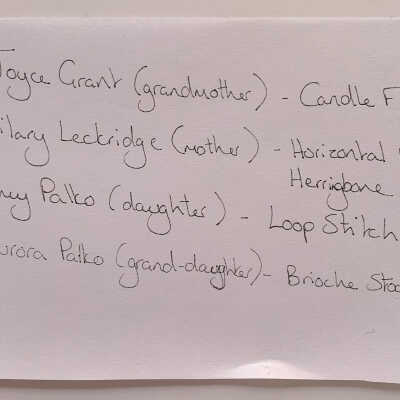 Joyce Grant (grandmother) - Candle F
ilary Leckridge (mother) - Horizontal
Herringbone
Palko (daughter) - Loop Stitch
urora Palko (grand-daughter) - Brioche Stoc